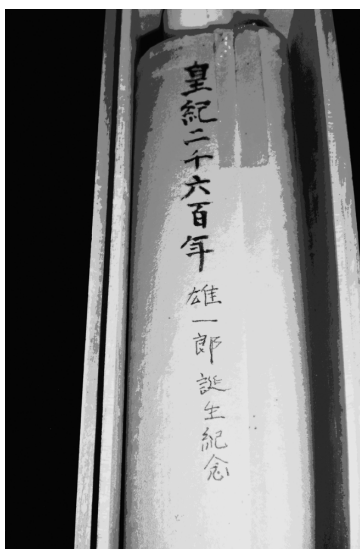 皇紀二千六百年 雄一郎誕生紀念